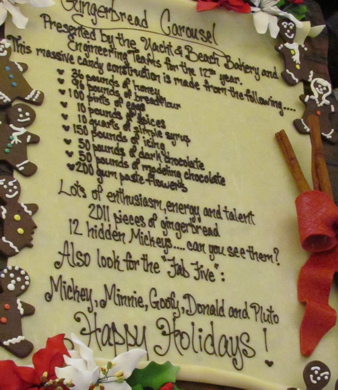 Gingerbread Carousel
Presented by the Yacht & Beach Bakery and
Engineering Teams for the 12th year.
This massive candy construction is made from the following....
36 pounds of honey
91 pounds of bread flour
100 pints of eggs
10 pounds of spices
10 quarts of simple syrup
150 pounds of icing
50 pounds of dark chocolate
50 pounds of modeling chocolate
200 gum paste flowers
Lots of enthusiasm, energy and talent
2011 pieces of gingerbread
12 hidden Mickeys.... can you see them?
Also look for the "Fab Five":
Mickey, Minnie, Goofy, Donald and Pluto
Happy Holidays!